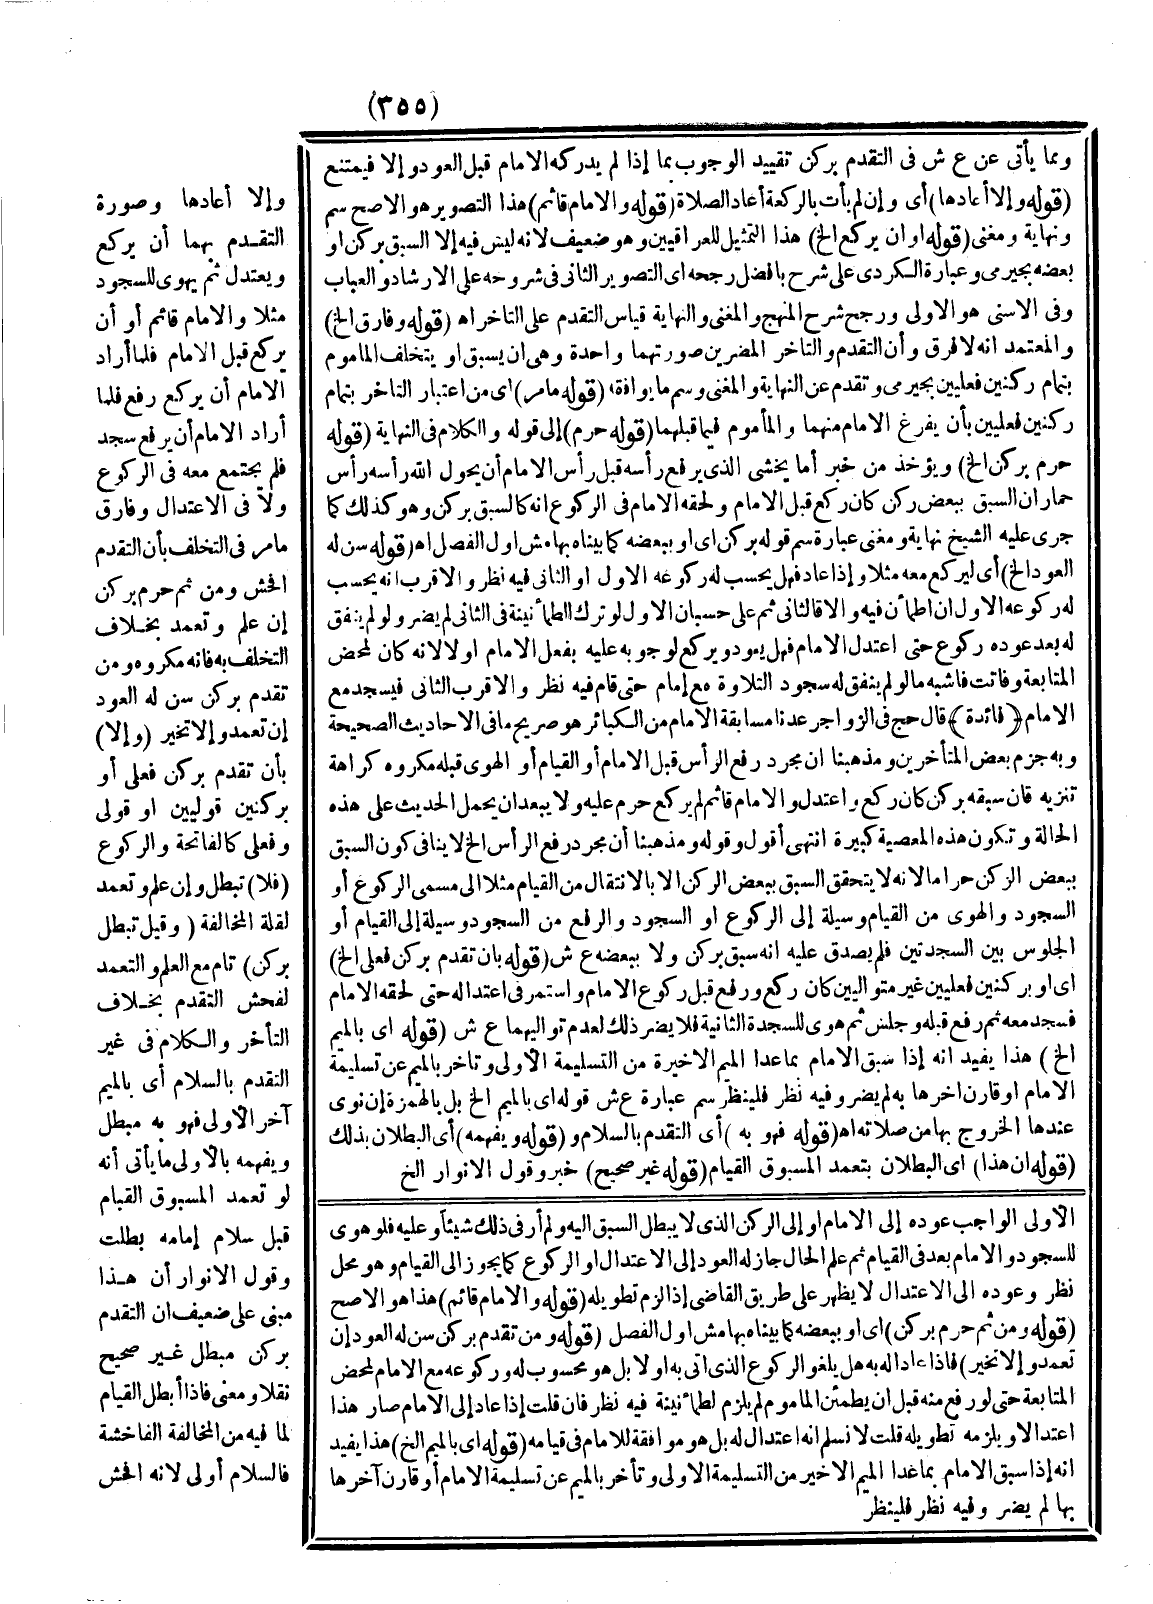 (٣٥٥)
وما يأتى عن ع ش فى التقدم بركن تقييد الوجوب بما إذا لم يدركه الامام قبل العود وإلا فيمتنع
(قوله وإلا أعادها) أى وإن لم يأت بالركعة أعاد الصلاة (قوله والامام قائم) هذا التصوير هو الاصح سم
ونهاية ومغنى (قوله او ان يركع الخ) هذا التمثيل للعراقيين وهو ضعيف لانه ليس فيه إلا السبق بركن او
بعضه بجيرمى وعبارة الكردى على شرح بافضل رجحه اى التصوير الثانى فى شروحه على الارشاد والعباب
وفى الاسنى هو الاولى ورجح شرح المنهج والمغنى والنهاية قياس التقدم على التاخر اه (قوله وفارق الخ)
والمعتمد انه لا فرق وأن التقدم والتاخر المضرين صورتهما واحدة وهى ان يسبق او يتخلف الماموم
بتمام ركنين فعليين بجيرمى وتقدم عن النهاية والمغنى وسم ما يوافقه (قوله مامر) اى من اعتبار التاخر بتمام
ركنين فعليين بأن يفرغ الامام منهما والمأموم فيما قبلهما (قوله حرم) إلى قوله والكلام فى النهاية (قوله
حرم بركن الخ) ويؤخذ من خبر أما يخشى الذى يرفع رأسه قبل رأس الامام أن يحول الله رأسه رأس
حمار ان السبق ببعض ركن كان ركع قبل الامام ولحقه الامام فى الركوع انه كالسبق بركن وهو كذلك كما
جرى عليه الشيخ نهاية ومغنى عبارة سم قوله بركن اى او ببعضه كما بيناه بهامش اول الفصل اه (قوله سن له
العود الخ) أى ليركع معه مثلا وإذا عاد فهل يحسب له ركوعه الاول او الثانى فيه نظر والاقرب انه يحسب
له ركوعه الاول ان اطمأن فيه والا فالثانى ثم على حسبان الاول لو ترك الطمأنينة فى الثانى لم يضر ولو لم يتفق
له بعد عوده ركوع حتى اعتدل الامام فهل يعود ويركع لوجوبه عليه بفعل الامام او لا لانه كان لمحض
المتابعة وفاتت فاشبه مالو لم يتفق له سجود التلاوة مع إمام حتى قام فيه نظر والاقرب الثانى فيسجد مع
الامام ﴿فائدة﴾ قال حج فى الزواجر عدنا مسابقة الامام من الكبائر هو صريح مافى الاحاديث الصحيحة
وبه جزم بعض المتأخرين ومذهبنا ان مجرد رفع الرأس قبل الامام أو القيام أو الهوى قبله مكروه كراهة
تنزيه فان سبقه بركن كان ركع واعتدل والامام قائم لم يركع حرم عليه ولا يبعد ان يحمل الحديث على هذه
الحالة وتكون هذه المعصية كبيرة انتهى أقول وقوله ومذهبنا أن مجرد رفع الرأس الخ لا ينافى كون السبق
ببعض الركن حراما لانه لا يتحقق السبق ببعض الركن الا بالانتقال من القيام مثلا الى مسمى الركوع أو
السجود والهوى من القيام وسيلة إلى الركوع او السجود والرفع من السجود وسيلة إلى القيام أو
الجلوس بين السجدتين فلم يصدق عليه انه سبق بركن ولا ببعضه ع ش (قوله بان تقدم بركن فعلى الخ)
اى او بركنين فعليين غير متواليين كان ركع ورفع قبل ركوع الامام واستمر فى اعتداله حتى لحقه الامام
فسجد معه ثم رفع قبله وجلس ثم هوى للسجدة الثانية فلا يضر ذلك لعدم تواليهما ع ش (قوله اى بالميم
الخ) هذا يفيد انه إذا سبق الامام بما عدا الميم الاخيرة من التسليمة الأولى وتاخر بالميم عن تسليمة
الامام او قارن اخرها به لم يضر وفيه نظر فلينظر سم عبارة ع ش قوله اى بالميم الخ بل بالهمزة إن نوى
عندها الخروج بها من صلاته اه (قوله فهو به) أى التقدم بالسلام و (قوله ويفهمه) أى البطلان بذلك
(قوله ان هذا) اى البطلان بتعمد المسبوق القيام (قوله غير صحيح) خبر وقول الانوار الخ
الأولى الواجب عوده إلى الامام او إلى الركن الذى لا يبطل السبق اليه ولم أر فى ذلك شيئا وعليه فلو هوى
للسجود والامام بعد فى القيام ثم علم الحال جاز له العود إلى الاعتدال او الركوع كما يجوز الى القيام وهو محل
نظر وعوده الى الاعتدال لا يظهر على طريق القاضى إذ الزم تطويله (قوله والامام قائم) هذا هو الاصح
(قوله ومن ثم حرم بركن) اى او ببعضه كما بيناه بهامش اول الفصل (قوله ومن تقدم بركن سن له العود إن
تعمد وإلا تخير) فاذا عاد اله به هل يلغو الركوع الذى اتى به او لا بل هو محسوب له وركوعه مع الامام لمحض
المتابعة حتى لو رفع منه قبل ان يطمئن الماموم لم يلزم لطمأنينة فيه نظر فان قلت إذا عاد إلى الامام صار هذا
اعتدالا ويلزمه تطويله قلت لا نسلم انه اعتدال له بل هو موافقة للامام فى قيامه (قوله اى بالميم الخ) هذا يفيد
انه إذا سبق الامام بماعدا الميم الاخير من التسليمة الاولى وتأخر بالميم عن تسليمة الامام أو قارن آخرها
بها لم يضر وفيه نظر فلينظر
وإلا أعادها وصورة
التقدم بهما أن يركع
ويعتدل ثم يهوى للسجود
مثلا والامام قائم أو أن
يركع قبل الامام فلما أراد
الامام أن يركع رفع فلما
أراد الامام أن يرفع سجد
فلم يجتمع معه فى الركوع
ولا فى الاعتدال وفارق
مامر فى التخلف بأن التقدم
افحش ومن ثم حرم بركن
إن علم وتعمد بخلاف
التخلف به فانه مكروه ومن
تقدم بركن سن له العود
إن تعمد وإلا تخير (وإلا)
بأن تقدم بركن فعلى أو
بركنين قوليين او قولى
وفعلى كالفاتحة والركوع
(فلا) تبطل وإن علم وتعمد
لقلة المخالفة (وقيل تبطل
بركن) تام مع العلم والتعمد
لفحش التقدم بخلاف
التأخر والكلام فى غير
التقدم بالسلام أى بالميم
آخر الأولى فهو به مبطل
ويفهمه بالأولى ما يأتى أنه
لو تعمد المسبوق القيام
قبل سلام إمامه بطلت
وقول الانوار أن هذا
مبنى على ضعيف ان التقدم
بركن مبطل غير صحيح
نقلا ومعنى فاذا أبطل القيام
لما فيه من المخالفة الفاخشة
فالسلام أولى لانه افحش